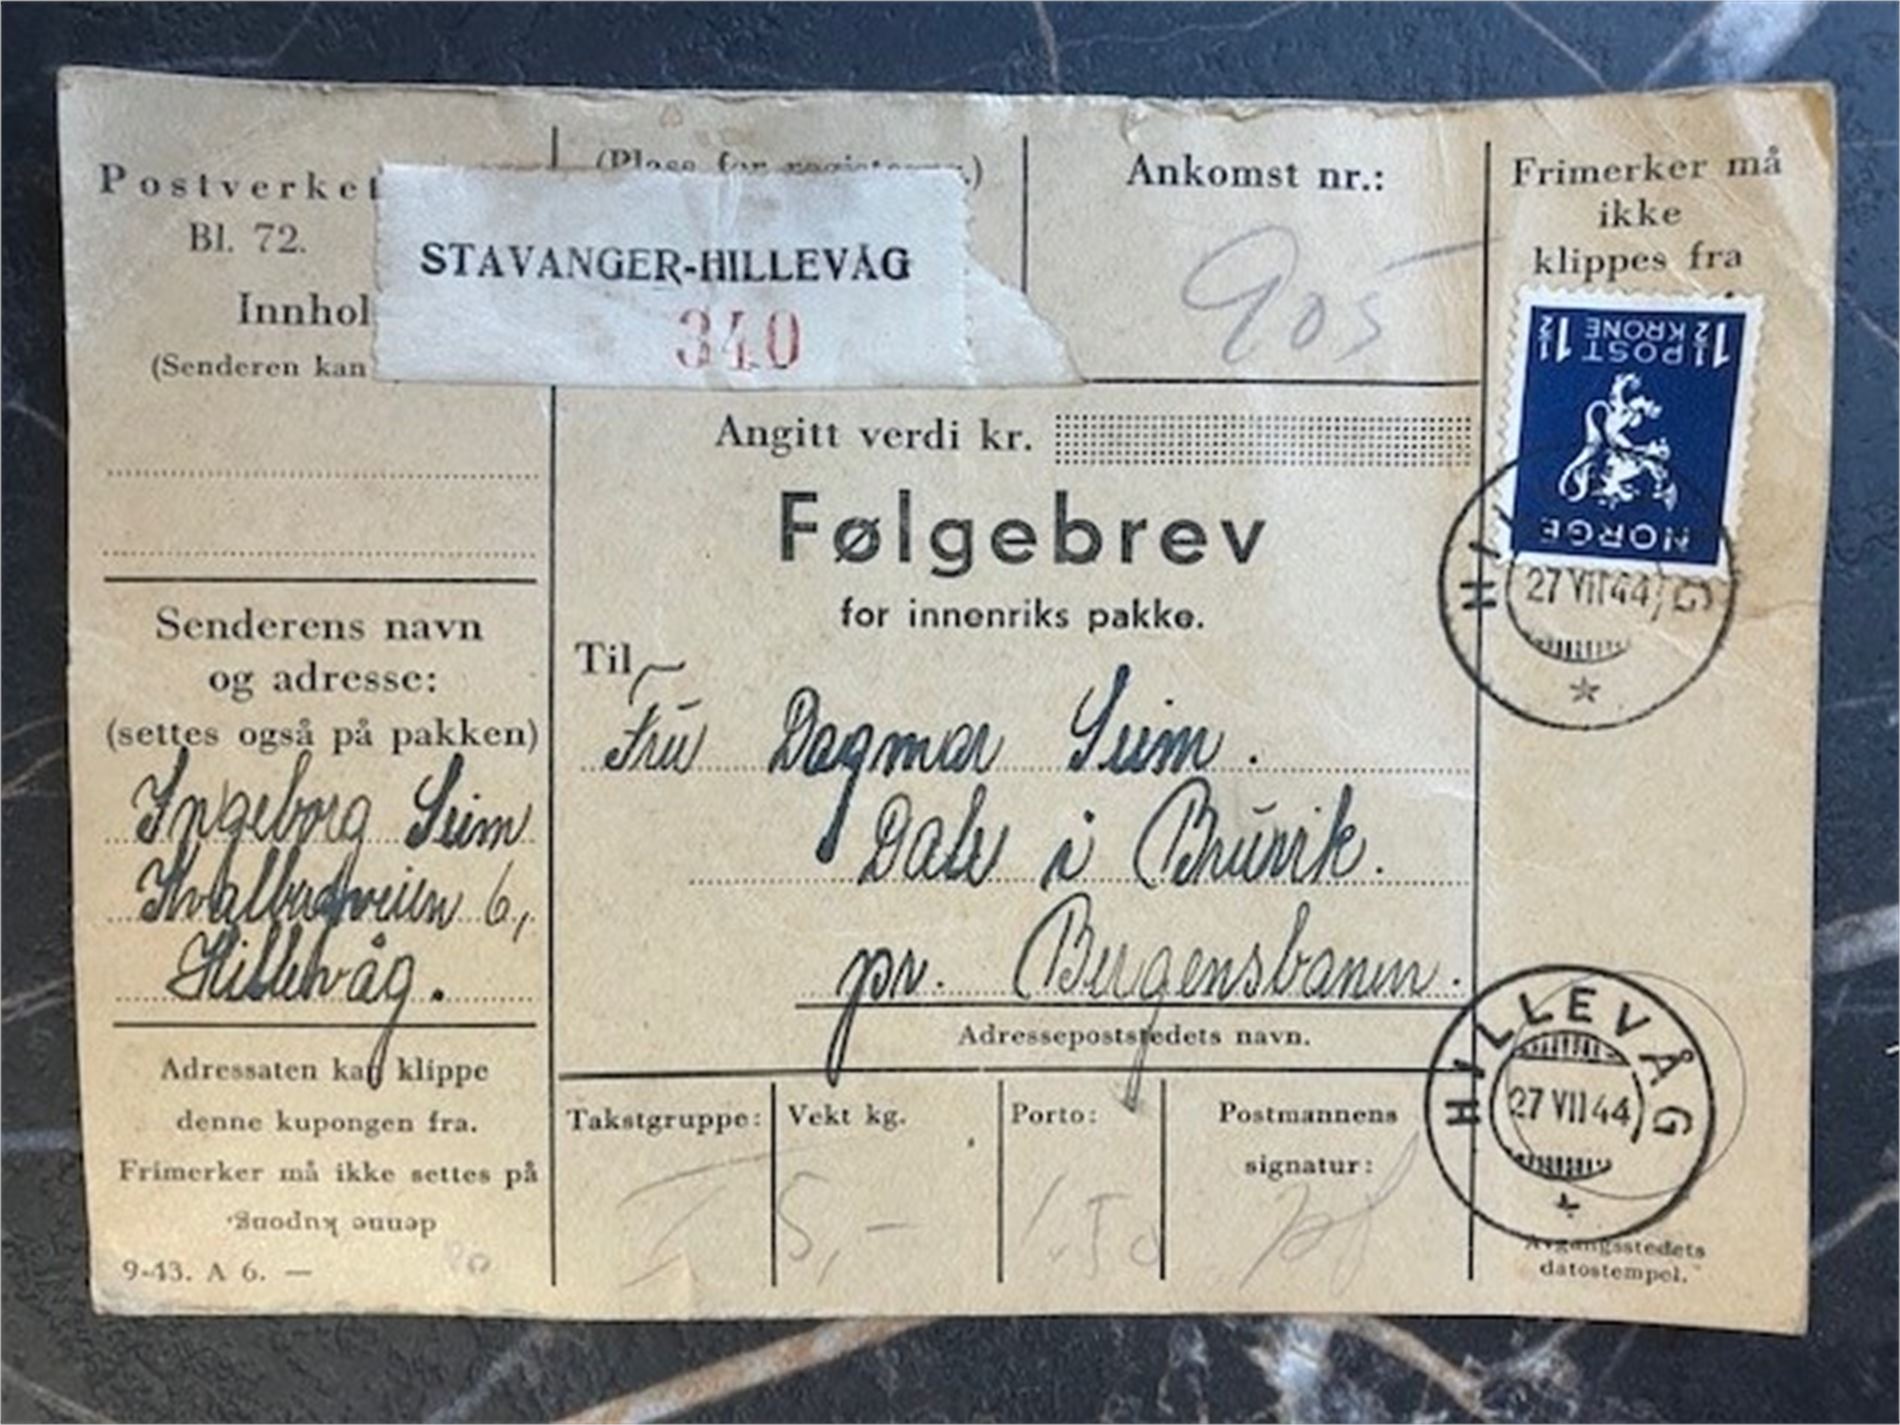 Postverket
Bl. 72.
Innhol
(Senderen kan
STAVANGER-HILLEVÅG
340
Ankomst nr.:
905
Frimerker må
ikke
klippes fra
1½ POST 1½
KRONE
NORGE
27 VII 44
Angitt verdi kr.
Følgebrev
for innenriks pakke.
Til
Fru Dagmar Seim.
Dale i Bruvik.
pr. Bergensbanen.
Adressepoststedets navn.
Senderens navn
og adresse:
(settes også på pakken)
Ingeborg Seim
6,
Hillevåg.
Adressaten kan klippe
denne kupongen fra.
Frimerker må ikke settes på
denne kupong.
9-43. A 6. —
Takstgruppe:
I
Vekt kg.
5,-
Porto:
1.50
Postmannens
signatur:
HILLEVÅG
27 VII 44
Avgangsstedets
datostempel.